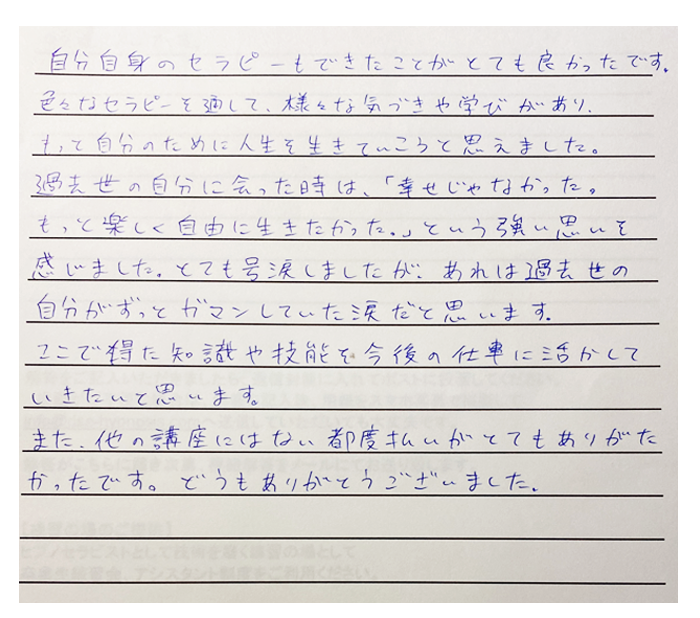 自分自身のセラピーもできたことがとても良かったです。
色々なセラピーを通して、様々な気づきや学びがあり、
もっと自分のために人生を生きていこうと思えました。
過去世の自分に会った時は、「幸せじゃなかった。
もっと楽しく自由に生きたかった。」という強い思いを
感じました。とても号涙しましたが、あれは過去世の
自分がずっとガマンしていた涙だと思います。
ここで得た知識や技能を今後の仕事に活かして
いきたいと思います。
また、他の講座にはない都度払いがとてもありがた
かったです。どうもありがとうございました。